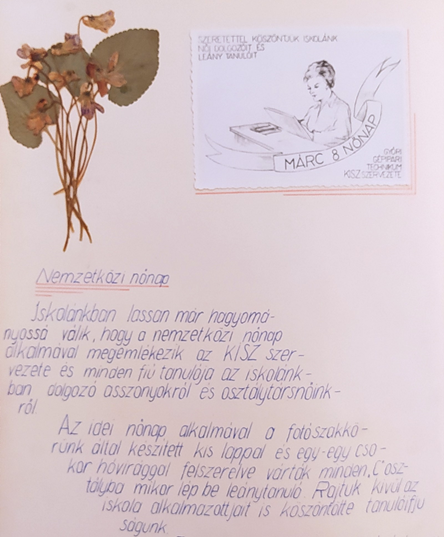 SZERETETTEL KÖSZÖNTJÜK ISKOLÁNK
NŐI DOLGOZÓIT ÉS
LEÁNY TANULÓIT
MÁRC 8 NŐNAP
GYŐRI
GÉPIPARI
TECHNIKUM
KISZ SZERVEZETE
Nemzetközi nőnap
Iskolánkban lassan már hagyomá-
nyossá válik, hogy a nemzetközi nőnap
alkalmával megemlékezik az KISZ szer-
vezete és minden fiú tanulója az iskolánk-
ban dolgozó asszonyokról és osztálytársnőink-
ről.
Az idei nőnap alkalmával a fotószakkö-
rünk által készített kis lappal és egy-egy cso-
kor hóvirággal felszerelve várták minden "C" osz-
tályba mikor lép be leánytanuló. Rajtuk kívül az
iskola alkalmazottjait is köszöntötte tanulóifjú
ságunk.